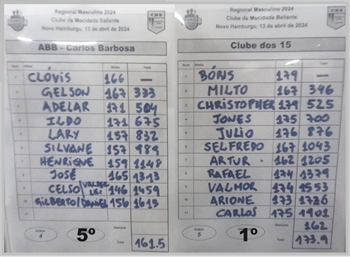 Regional Masculino 2024
Clube da Mocidade Saliente
Novo Hamburgo, 13 de abril de 2024
ABB - Carlos Barbosa
CLÓVIS 166 —
GELSON 167 333
ADELAR 171 504
ILDO 171 675
LARY 157 832
SILVANE 157 989
HENRIQUE 159 1148
JOSÉ 165 1313
CELSO/VALDERLEI 146 1459
GILBERTO/DANIEL 156 1615
5º
161.5
Regional Masculino 2024
Clube da Mocidade Saliente
Novo Hamburgo, 13 de abril de 2024
Clube dos 15
BÓRIS 179 —
MILTO 167 346
CHRISTOPHER 179 525
JONES 175 700
JULIO 176 876
SELFREDO 167 1043
ARTUR 162 1205
RAFAEL 174 1379
VALMOR 174 1553
ARIONE 173 1726
CARLOS 175 1901
162
1º
173.9